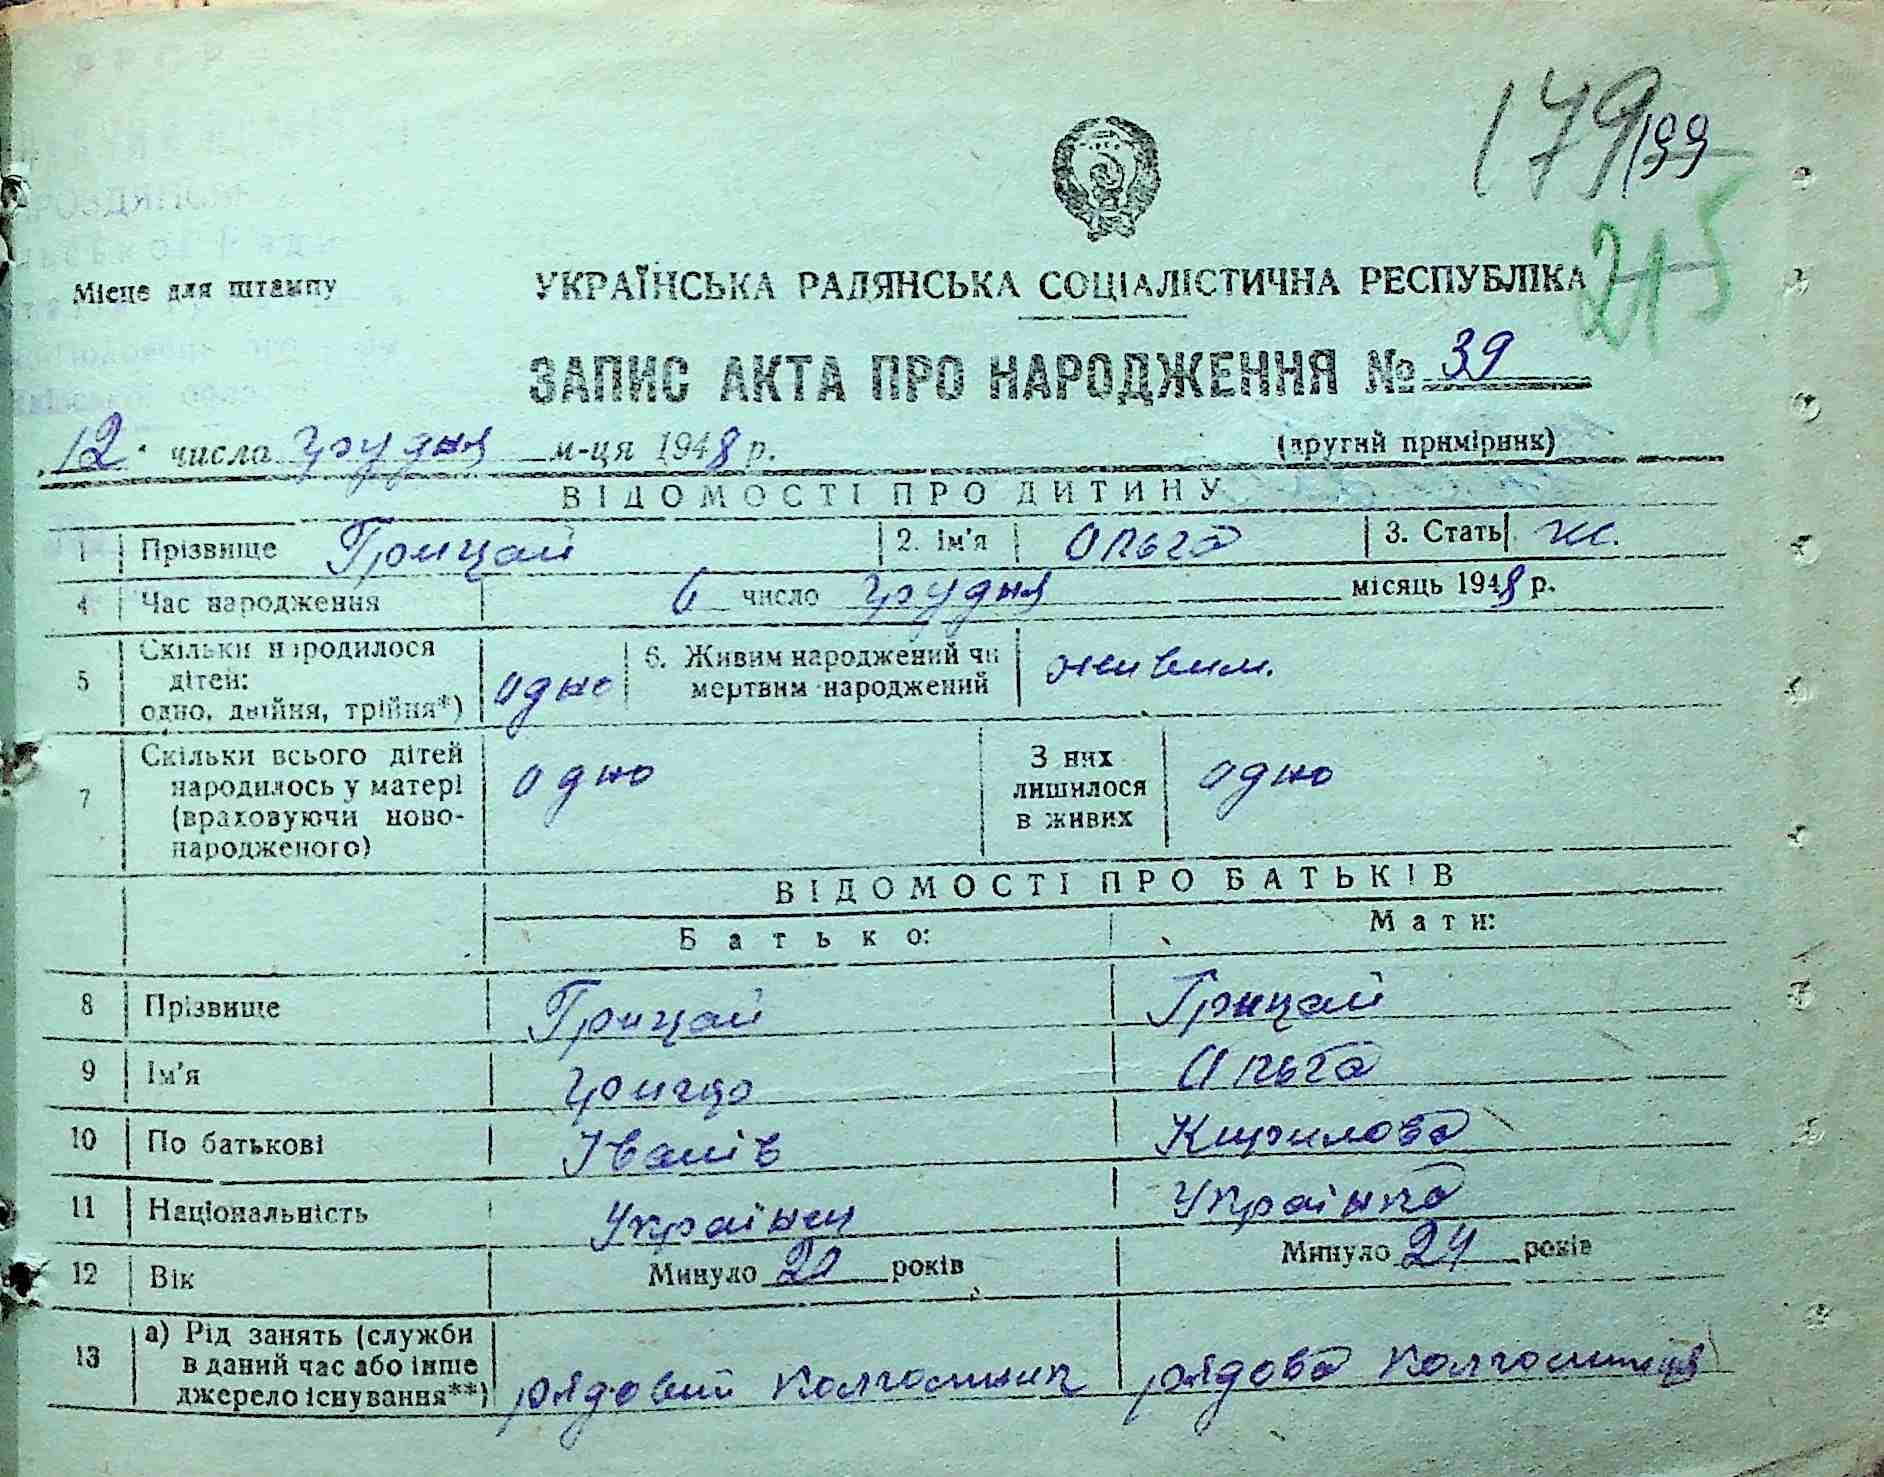 179 199
215
Місце для штампу
УКРАЇНСЬКА РАДЯНСЬКА СОЦІАЛІСТИЧНА РЕСПУБЛІКА
ЗАПИС АКТА ПРО НАРОДЖЕННЯ № 39
"12" числа грудня м-ця 1948 р.
(другий примірник)
ВІДОМОСТІ ПРО ДИТИНУ
1 Прізвище Грицай 2. Ім'я Ольга 3. Стать ж.
4 Час народження 6 число грудня місяць 1948 р.
5 Скільки народилося дітей: одно, двійня, трійня*) одно 6. Живим народжений чи мертвим народжений живим.
7 Скільки всього дітей народилось у матері (враховуючи ново-народженого) одно З них лишилося в живих одно
ВІДОМОСТІ ПРО БАТЬКІВ
Батько: Мати:
8 Прізвище Грицай Грицай
9 Ім'я Ольга
10 По батькові Іванів Кирилова
11 Національність Українец Українка
12 Вік Минуло 20 років Минуло 24 років
13 а) Рід занять (служби в даний час або інше джерело існування**) рядовий колгоспник рядова колгоспниця